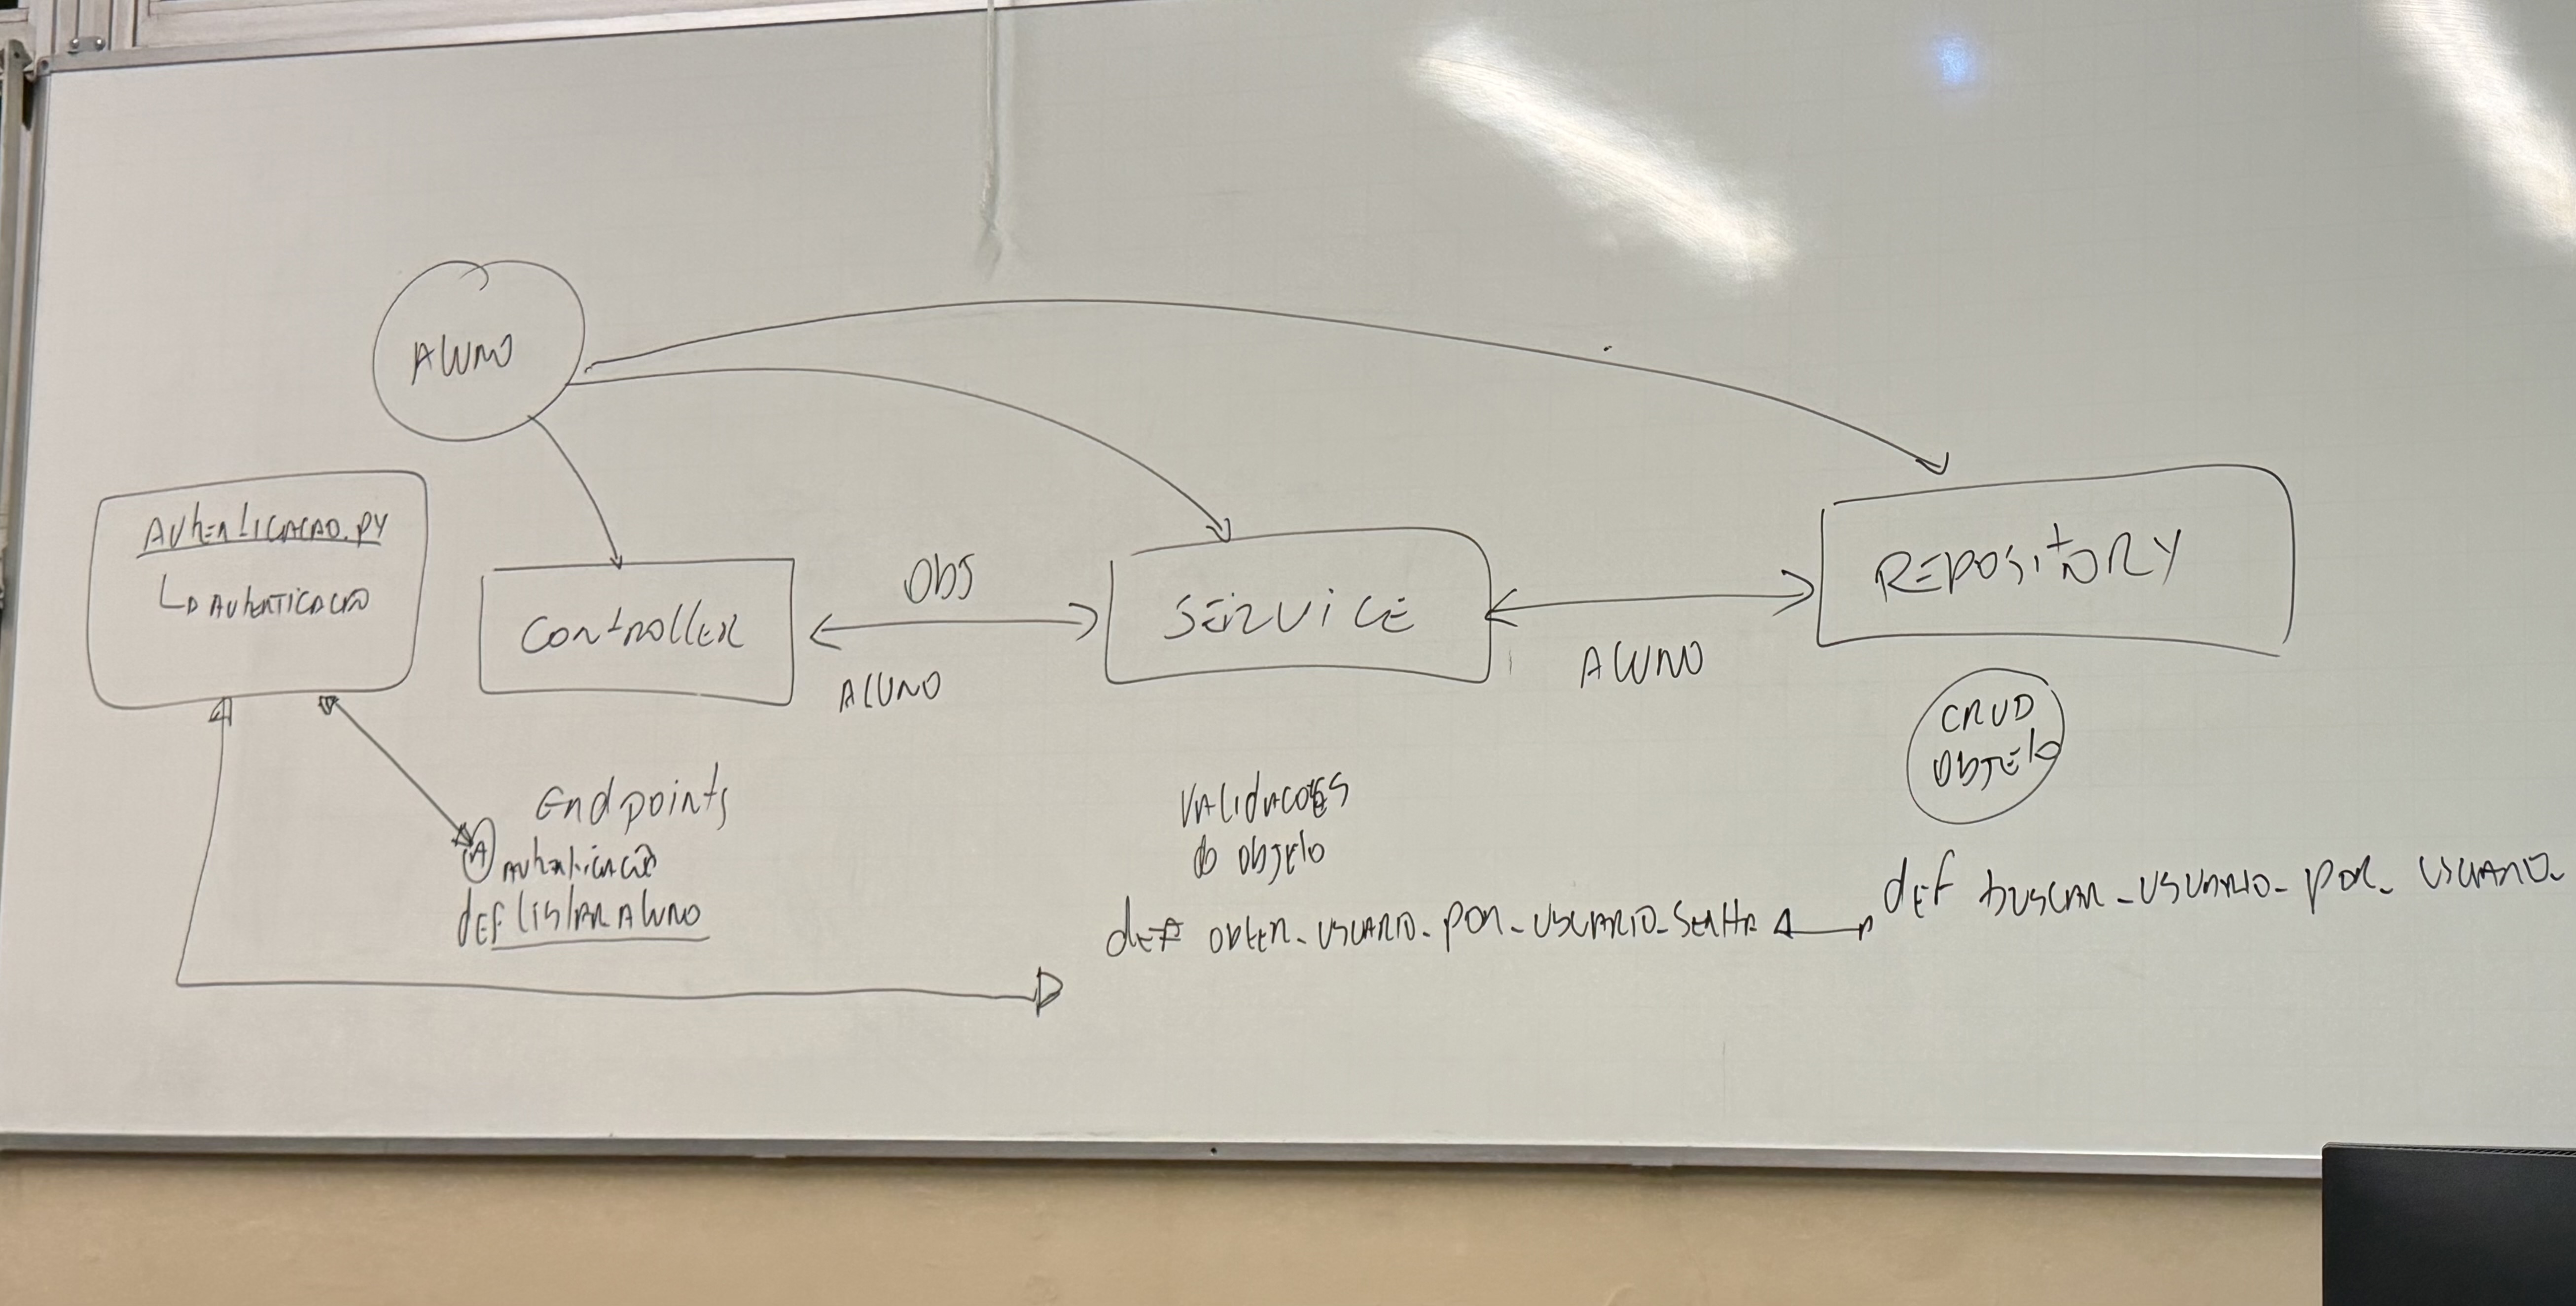 ALUNO
AUTENTICACAO.PY
AUTENTICACAO
CONTROLLER
OBJ
ALUNO
SERVICE
ALUNO
REPOSITORY
CRUD
OBJETO
Endpoints
@ AUTENTICACAO
def listAR ALUNO
VALIDACOES
do OBJETO
def OBTER_USUARIO_POR_USUARIO_SENHA
def BUSCAR_USUARIO_POR_USUARIO_